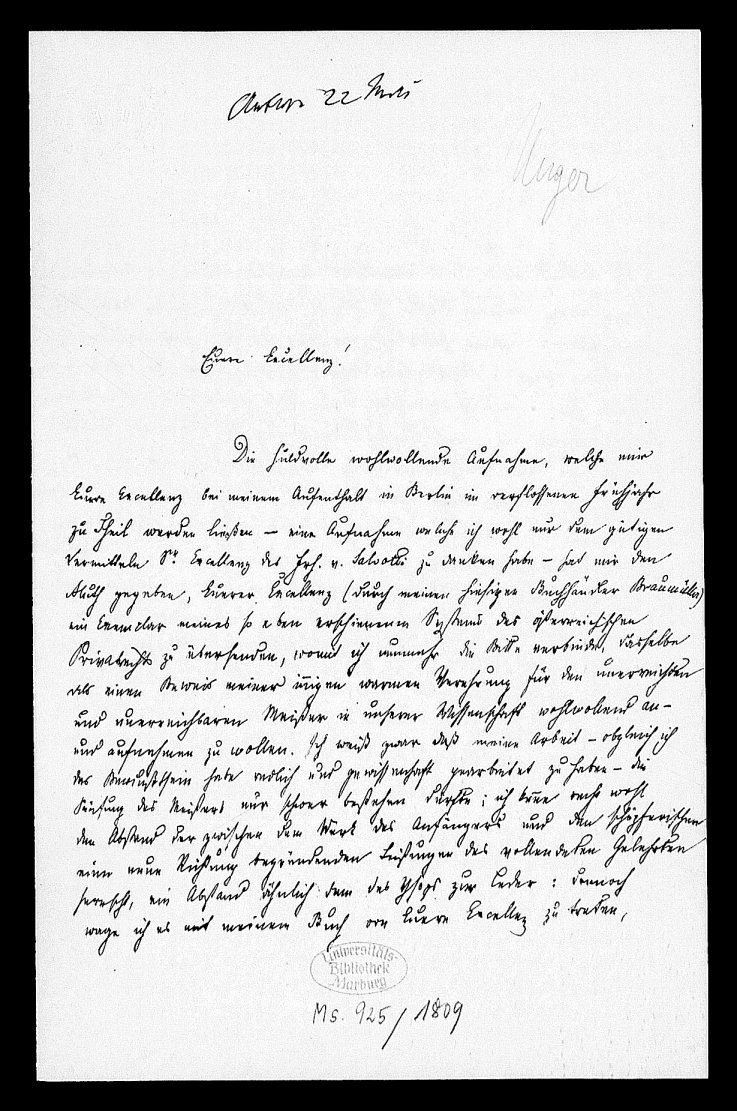 Antw. 22 Mai
Unger
Euere Excellenz!
Die huldvolle wohlwollende Aufnahme, welche mir
Euere Excellenz bei meinem Aufenthalt in Berlin im verflossenen Frühjahr
zu Theil werden ließen – eine Aufnahme welche ich wohl nur dem gütigen
Vermitteln Sr Excellenz des Frh. v. Salvotti zu danken habe – hat mir den
Muth gegeben, Euerer Excellenz (durch meinen hiesigen Buchhändler Braumüller)
ein Exemplar meines so eben erschienenen Systems des österreichischen
Privatrechts zu übersenden, womit ich nunmehr die Bitte verbinde, dasselbe
als einen Beweis meiner innigen warmen Verehrung für den unerreichten
und unerreichbaren Meister in unserer Wissenschaft wohlwollend an-
und aufnehmen zu wollen. Ich weiß zwar daß meine Arbeit – obgleich ich
das Bewußtsein habe redlich und gewissenhaft gearbeitet zu haben – die
Prüfung des Meisters nur schwer bestehen dürfte; ich kenne recht wohl
den Abstand der zwischen dem Werk des Anfängers und den schöpferischen
eine neue Richtung begründenden Leistungen des vollendeten Gelehrten
herrscht, ein Abstand ähnlich dem des Ysops zur Ceder: dennoch
wage ich es mit meinem Buch vor Euere Excellenz zu treten,
Universitäts-
Bibliothek
Marburg
Ms. 925/1809